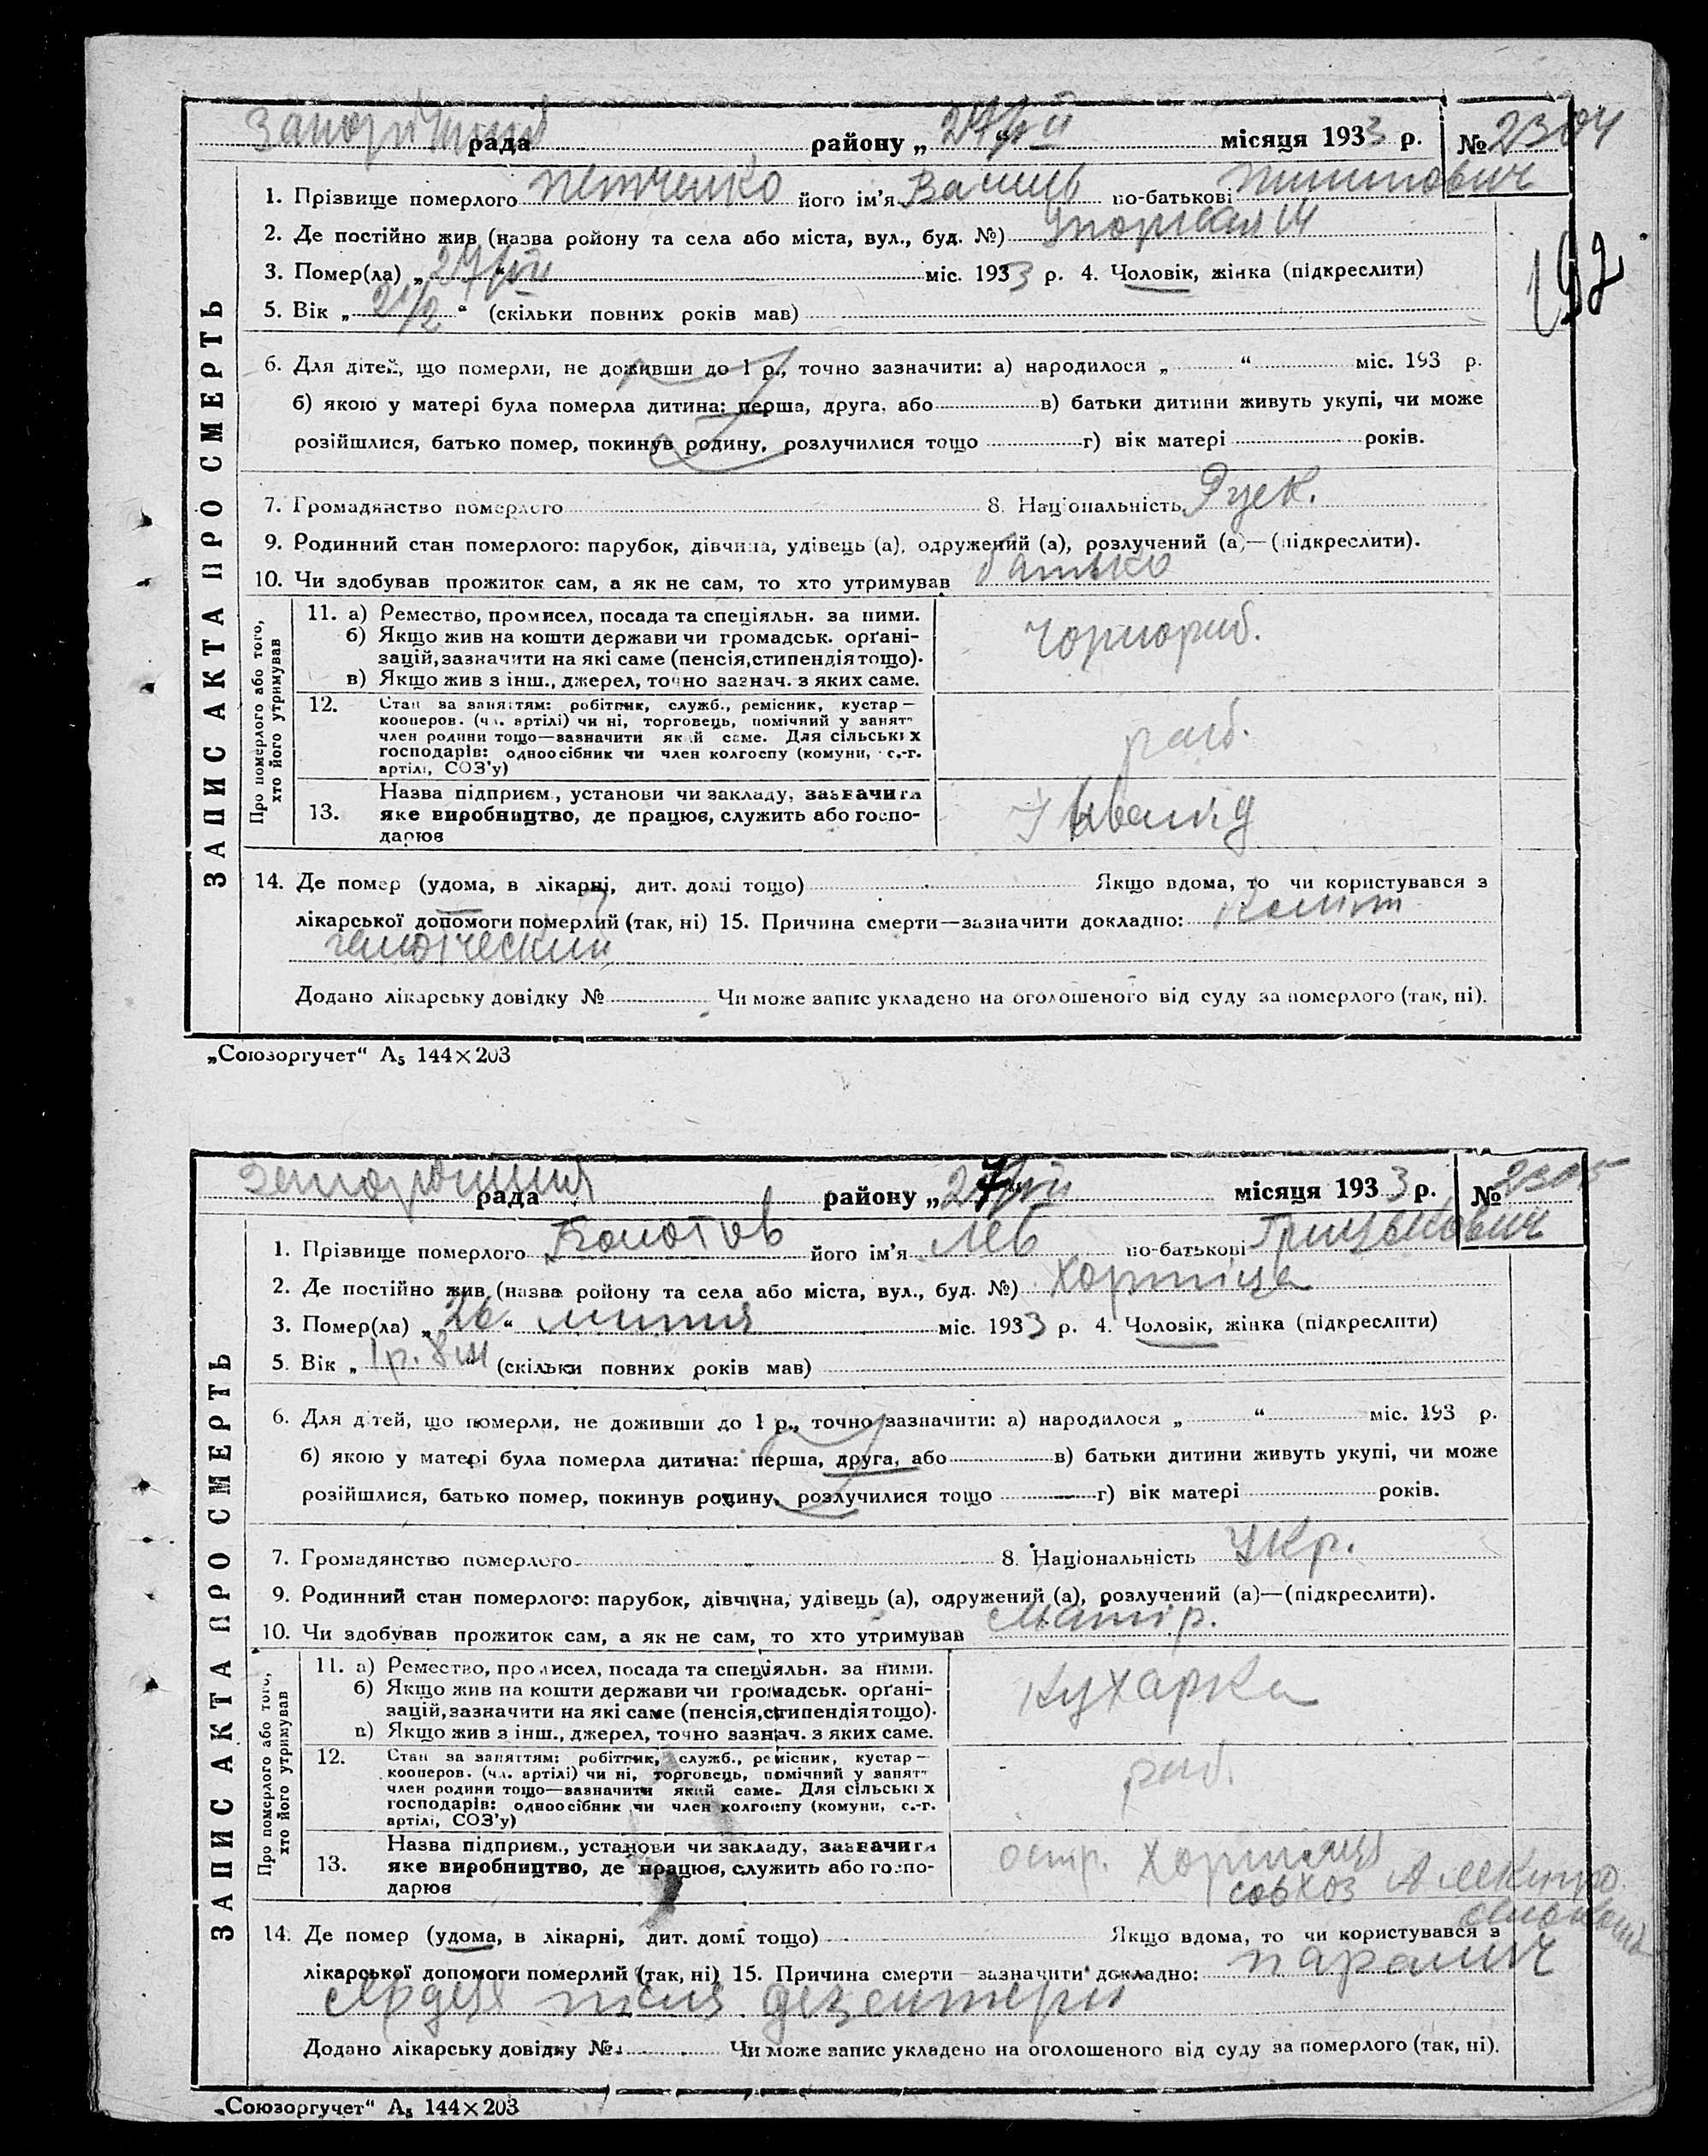 рада району „27/VII“ місяця 1933 р. № 2304
1. Прізвище померлого Петченко його ім'я Василь по-батькові Пилипович
2. Де постійно жив (назва ройону та села або міста, вул., буд. №)
3. Помер(ла) „27/VII“ міс. 1933 р. 4. Чоловік, жінка (підкреслити)
5. Вік „2 1/2“ (скільки повних років мав)
192
6. Для дітей, що померли, не доживши до 1 р., точно зазначити: а) народилося „ “ міс. 193 р.
б) якою у матері була померла дитина: перша, друга, або в) батьки дитини живуть укупі, чи може
розійшлися, батько помер, покинув родину, розлучилися тощо г) вік матері років.
7. Громадянство померлого 8. Національність Руск.
9. Родинний стан померлого: парубок, дівчина, удівець (а), одружений (а), розлучений (а)—(підкреслити).
10. Чи здобував прожиток сам, а як не сам, то хто утримував батько
ЗАПИС АКТА ПРО СМЕРТЬ
Про померлого або того, хто його утримував
11. а) Ремество, промисел, посада та спеціяльн. за ними.
б) Якщо жив на кошти держави чи громадськ. орґані-
зацій, зазначити на які саме (пенсія, стипендія тощо).
в) Якщо жив з інш., джерел, точно зазнач. з яких саме.
чорнораб.
12. Стан за заняттям: робітник, служб., ремісник, кустар—
кооперов. (чл. артілі) чи ні, торговець, помічний у занят.
член родини тощо—зазначити який саме. Для сільських
господарів: одноосібник чи член колгоспу (комуни, с.-г.
артілі, СОЗ'у)
раб.
13. Назва підприєм., установи чи закладу, зазначити
яке виробництво, де працює, служить або госпо-
дарює
14. Де помер (удома, в лікарні, дит. домі тощо) Якщо вдома, то чи користувався з
лікарської допомоги померлий (так, ні) 15. Причина смерти—зазначити докладно: Колит
Додано лікарську довідку № Чи може запис укладено на оголошеного від суду за померлого (так, ні).
„Союзоргучет“ А₅ 144×203
рада району „27/VII місяця 1933 р. № 2305
1. Прізвище померлого його ім'я Лев по-батькові Грицькович
2. Де постійно жив (назва ройону та села або міста, вул., буд. №) Хортиця
3. Помер(ла) „26“ липня міс. 1933 р. 4. Чоловік, жінка (підкреслити)
5. Вік „1 р. 8 м“ (скільки повних років мав)
6. Для дітей, що померли, не доживши до 1 р., точно зазначити: а) народилося „ “ міс. 193 р.
б) якою у матері була померла дитина: перша, друга, або в) батьки дитини живуть укупі, чи може
розійшлися, батько помер, покинув родину, розлучилися тощо г) вік матері років.
7. Громадянство померлого 8. Національність Укр.
9. Родинний стан померлого: парубок, дівчина, удівець (а), одружений (а), розлучений (а)—(підкреслити).
10. Чи здобував прожиток сам, а як не сам, то хто утримував Матір.
ЗАПИС АКТА ПРО СМЕРТЬ
Про померлого або того, хто його утримував
11. а) Ремество, промисел, посада та спеціяльн. за ними.
б) Якщо жив на кошти держави чи громадськ. орґані-
зацій, зазначити на які саме (пенсія, стипендія тощо).
в) Якщо жив з інш., джерел, точно зазнач. з яких саме.
кухарка
12. Стан за заняттям: робітник, служб., ремісник, кустар—
кооперов. (чл. артілі) чи ні, торговець, помічний у занят.
член родини тощо—зазначити який саме. Для сільських
господарів: одноосібник чи член колгоспу (комуни, с.-г.
артілі, СОЗ'у)
раб.
13. Назва підприєм., установи чи закладу, зазначити
яке виробництво, де працює, служить або госпо-
дарює
остр. Хортиця
совхоз
14. Де помер (удома, в лікарні, дит. домі тощо) Якщо вдома, то чи користувався з
лікарської допомоги померлий (так, ні) 15. Причина смерти—зазначити докладно: параліч
сердця після дезентерії
Додано лікарську довідку № Чи може запис укладено на оголошеного від суду за померлого (так, ні).
„Союзоргучет“ А₅ 144×203